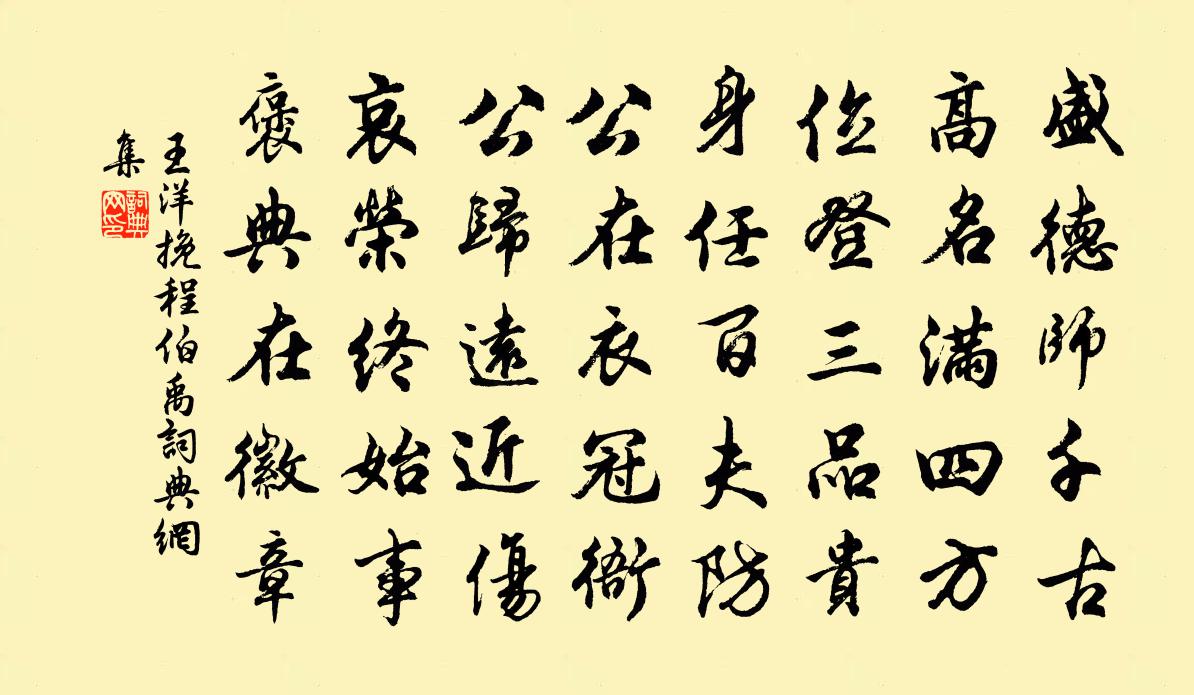 盛德師千古
高名滿四方
位登三品貴
身任百夫防
公在衣冠衙
公歸遠近傷
哀榮終始事
褒典在徽章
王洋挽程伯禹詞典網
集
詞典
网印